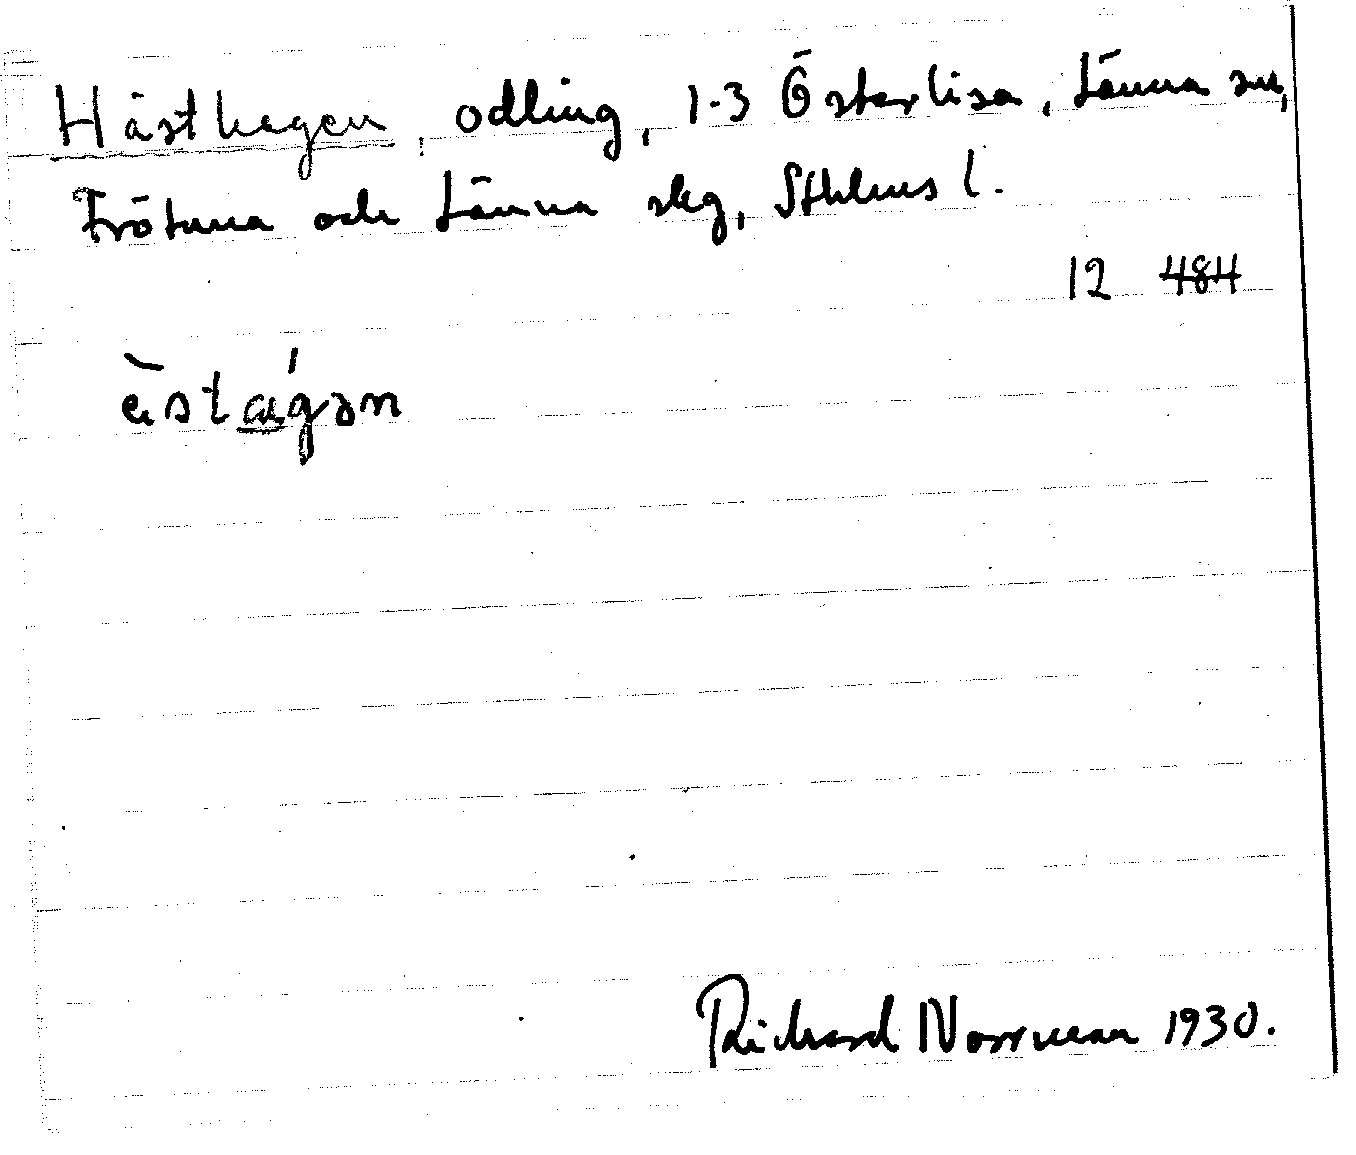 Hästhagen, odling, 1-3 Österlisa, Länna sn,
Frötuna och Länna skg, Sthlms l.
12 484
Richard Norrman 1930.